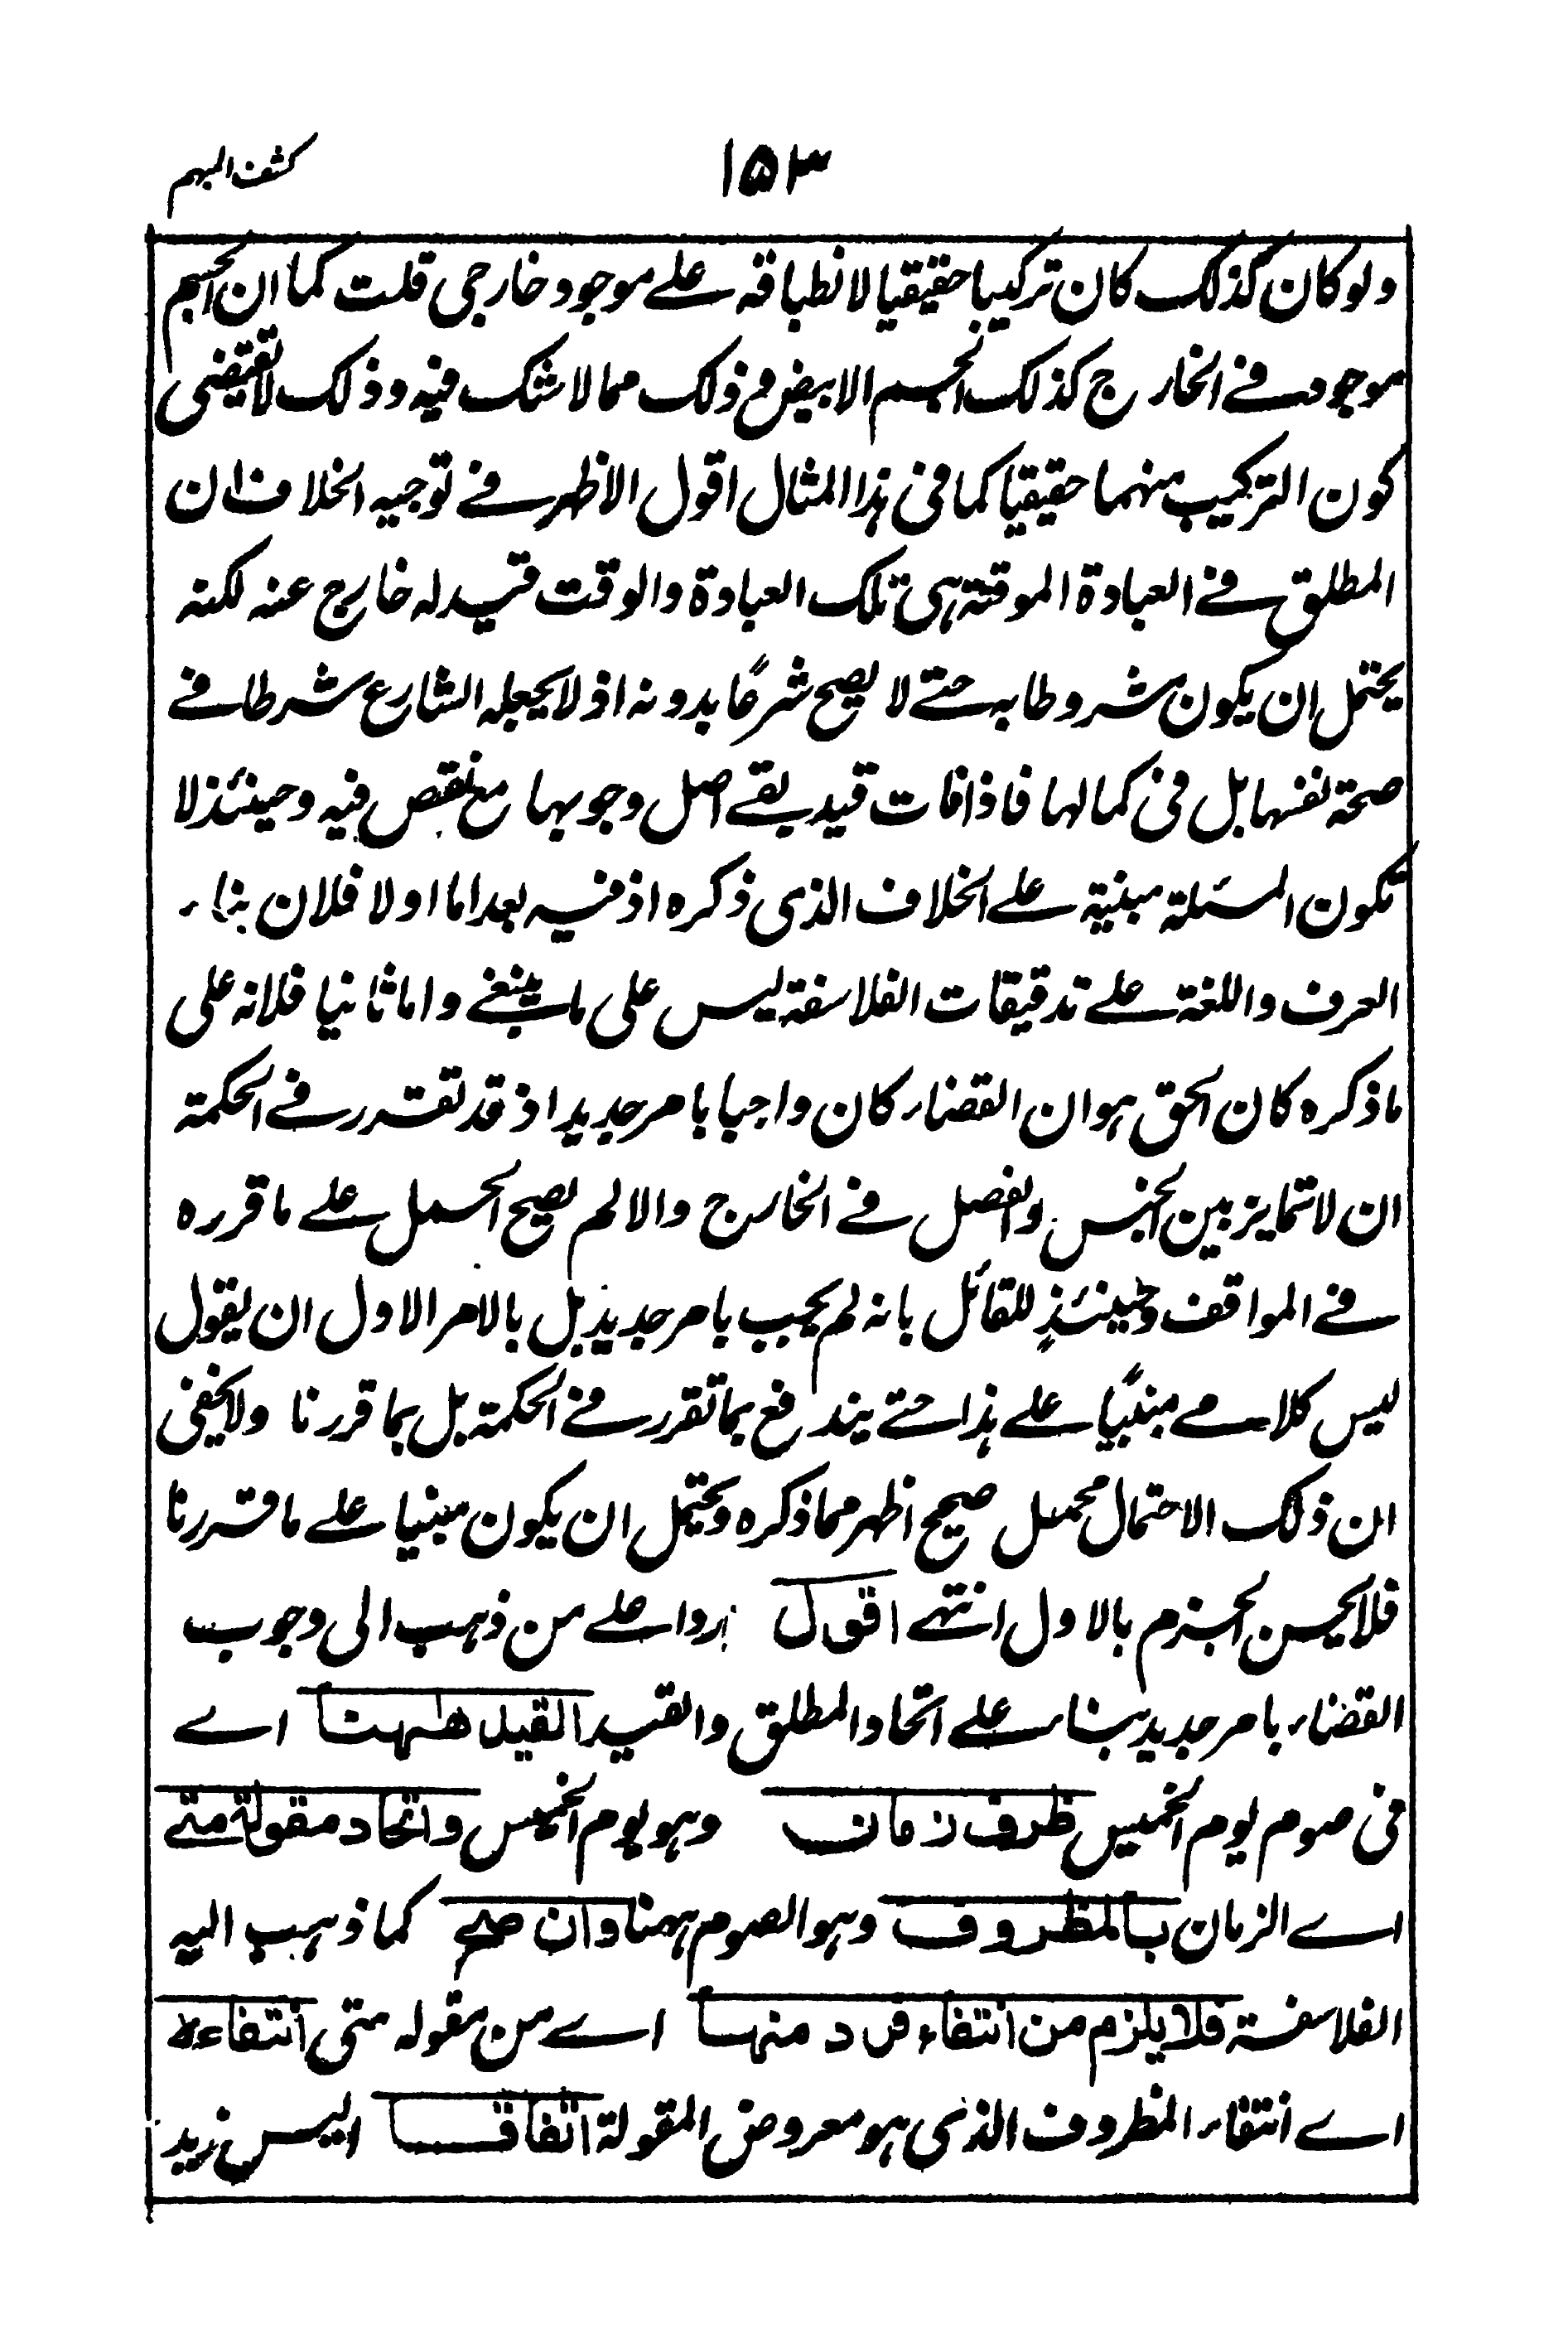 كشف المبهم
١٥٣
ولو كان كذلك كان تركيبا حقيقيا لانطباقه على موجود خارجى قلت كما ان الجسم
موجود فى الخارج كذلك الجسم الابيض و ذلك مما لا شك فيه وذلك لا يقتضى
كون التركيب منهما حقيقيا كما فى هذا المثال اقول الاظهر فى توجيه الخلاف ان
المطلق فى العبادة الموقتة هى تلك العبادة والوقت قيد له خارج عنه لكنه
يحتمل ان يكون مشروطا به حتى لا يصح شرعًا بدونه اذ لا يجعله الشارع شرطا فى
صحة نفسها بل فى كمالها فاذا فات قيد بقے اصل وجوبها مع نقص فيه وحينئذ لا
تكون المسئلة مبنية على الخلاف الذى ذكره اذ فيه بعد اما اولا فلان بناء
العرف واللغة على تدقيقات الفلاسفة ليس على ما ينبغى واما ثانيا فلانه على
ما ذكره كان الحق هو ان القضاء كان واجبا بامر جديد اذ قد تقرر فى الحكمة
ان لا تمايز بين الجنس والفصل فى الخارج والا لم يصح الحمل على ما قرره
فى المواقف وحينئذٍ للقائل بانه لم يجب بامر جديد بل بالامر الاول ان يقول
ليس كلامى مبنيًا على هذا حتى يندفع بما تقرر فى الحكمة بل بما قررنا ولا يخفى
ان ذلك الاحتمال محمل صحيح اظهر مما ذكره ويحتمل ان يكون مبنيا على ما قررنا
فلا يحسن الجزم بالاول انتهى اقول ردا على من ذهب الى وجوب
القضاء بامر جديد بناء على اتحاد المطلق والقيد القيد ههنا اى
فى صوم يوم الخميس ظرف زمان وهو يوم الخميس واتحاد مقولة متى
اى الزمان بالمظروف وهو الصوم ههنا وان صح كما ذهب اليه
الفلاسفة فلا يلزم من انتفاء فرد منها اى من مقوله متى انتفاءه
اى انتفاء المظروف الذى هو معروض المقولة اتفاقا اليس زيد